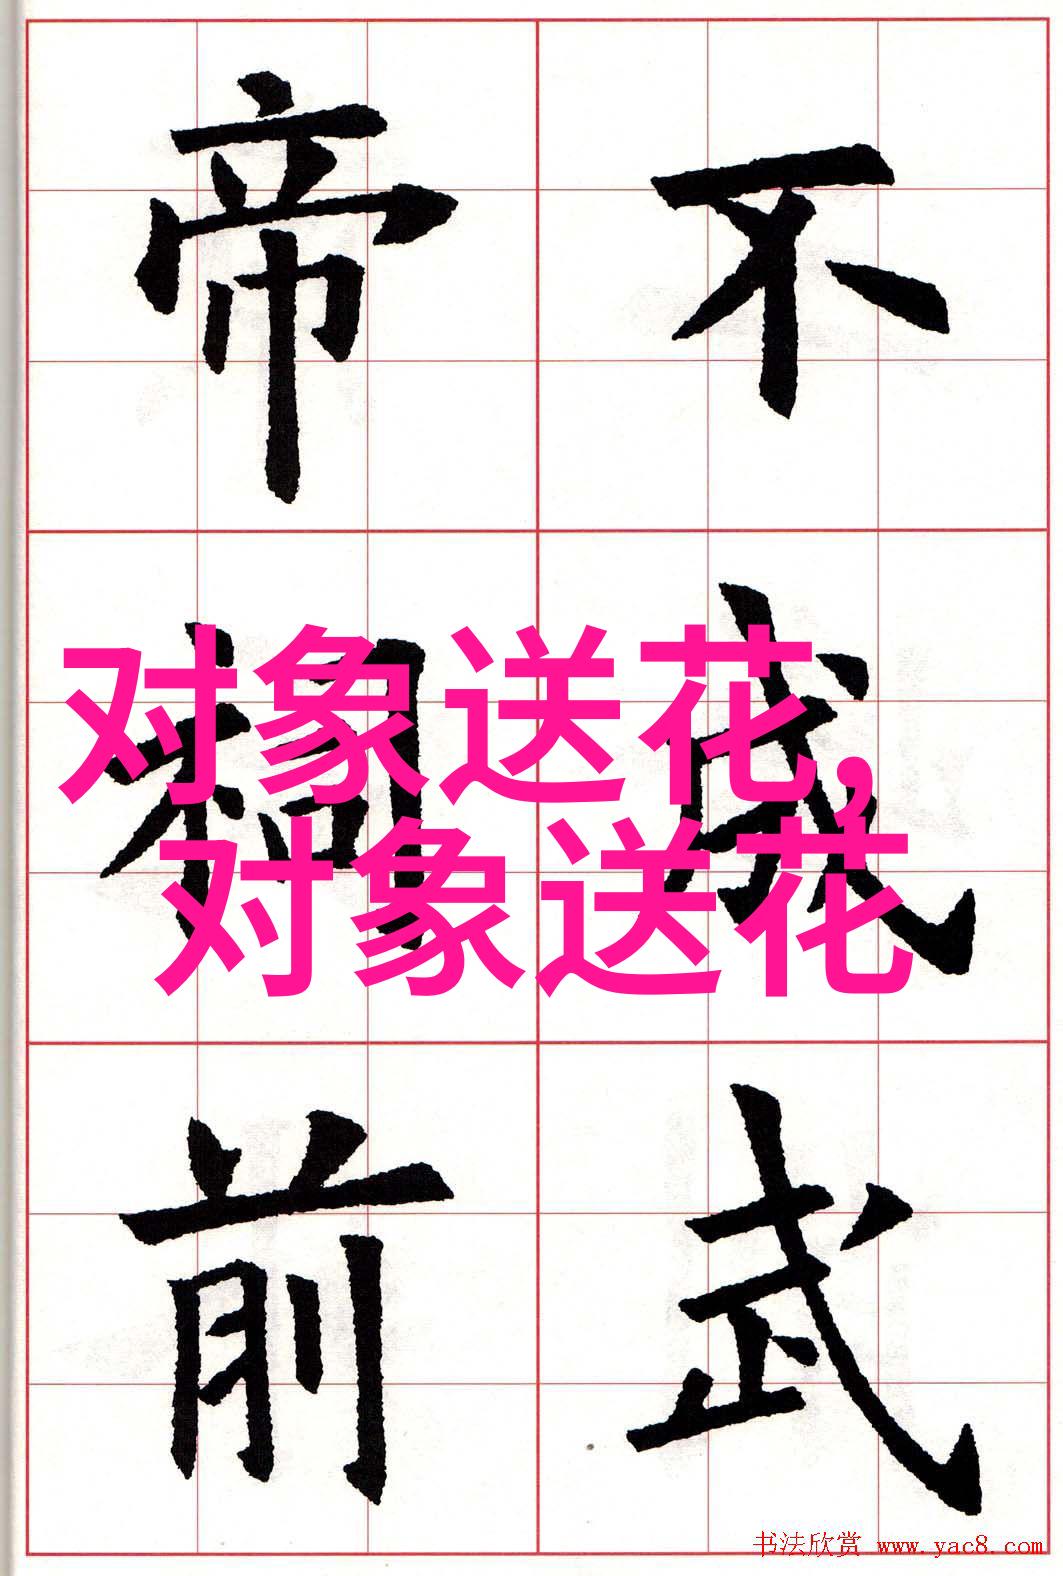 不武
帝前
对象送花,
对象送花
书法欣赏 www.yac8.com